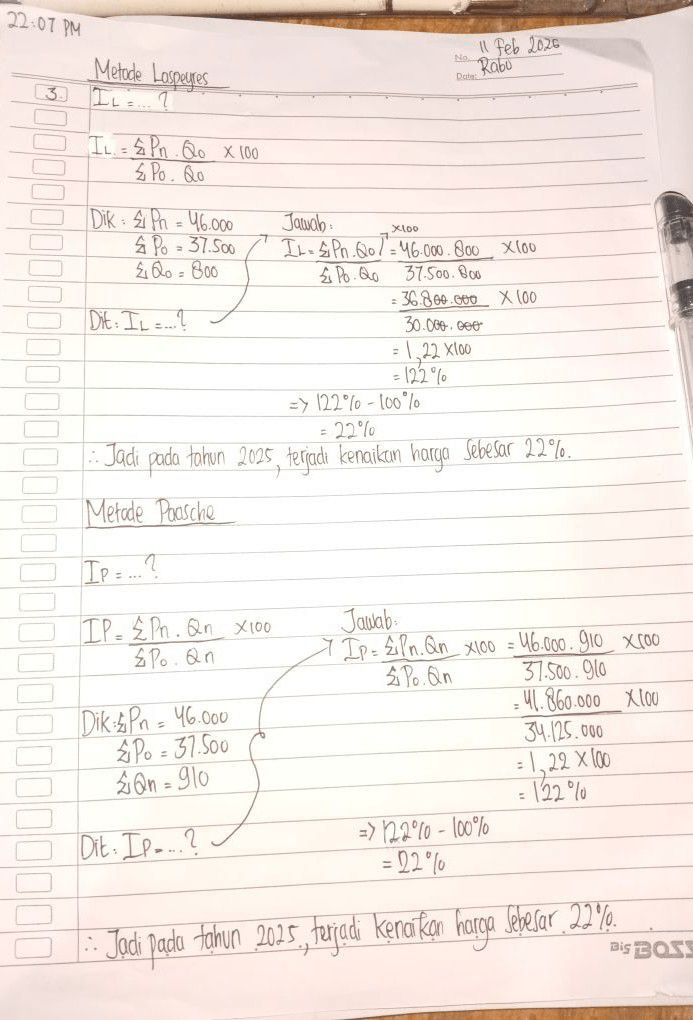 22:07 PM
No. 11 Feb 2026
Date: Rabu
Metode Laspeyres
3. IL = ... ?
IL = Σ Pn . Qo x 100
Σ Po . Qo
Dik : Σ Pn = 46.000
Σ Po = 37.500
Σ Qo = 800
Dit : IL = ...?
Jawab :
x100
IL = Σ Pn . Qo / = 46.000 . 800 x100
Σ Po . Qo 37.500 . 800
= 36.800.000 x 100
30.000.000
= 1,22 x 100
= 122%
=> 122% - 100%
= 22%
∴ Jadi pada tahun 2025, terjadi kenaikan harga Sebesar 22%.
Metode Paasche
IP = ... ?
IP = Σ Pn . Qn x100
Σ Po . Qn
Dik : Σ Pn = 46.000
Σ Po = 37.500
Σ Qn = 910
Dit : IP = ...?
Jawab :
IP = Σ Pn . Qn x100 = 46.000 . 910 x 100
Σ Po . Qn 37.500 . 910
= 41.860.000 x 100
34.125.000
= 1,22 x 100
= 122%
=> 122% - 100%
= 22%
∴ Jadi pada tahun 2025, terjadi kenaikan harga Sebesar 22%.
Big BOSS